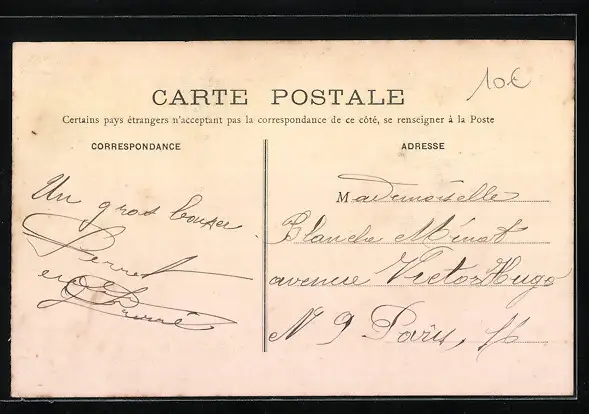 10€
CARTE POSTALE
Certains pays étrangers n'acceptant pas la correspondance de ce côté, se renseigner à la Poste
CORRESPONDANCE
Un gros baiser
ADRESSE
Mademoiselle
Blanche Ménat
avenue Victor Hugo
N 9 Paris, 16